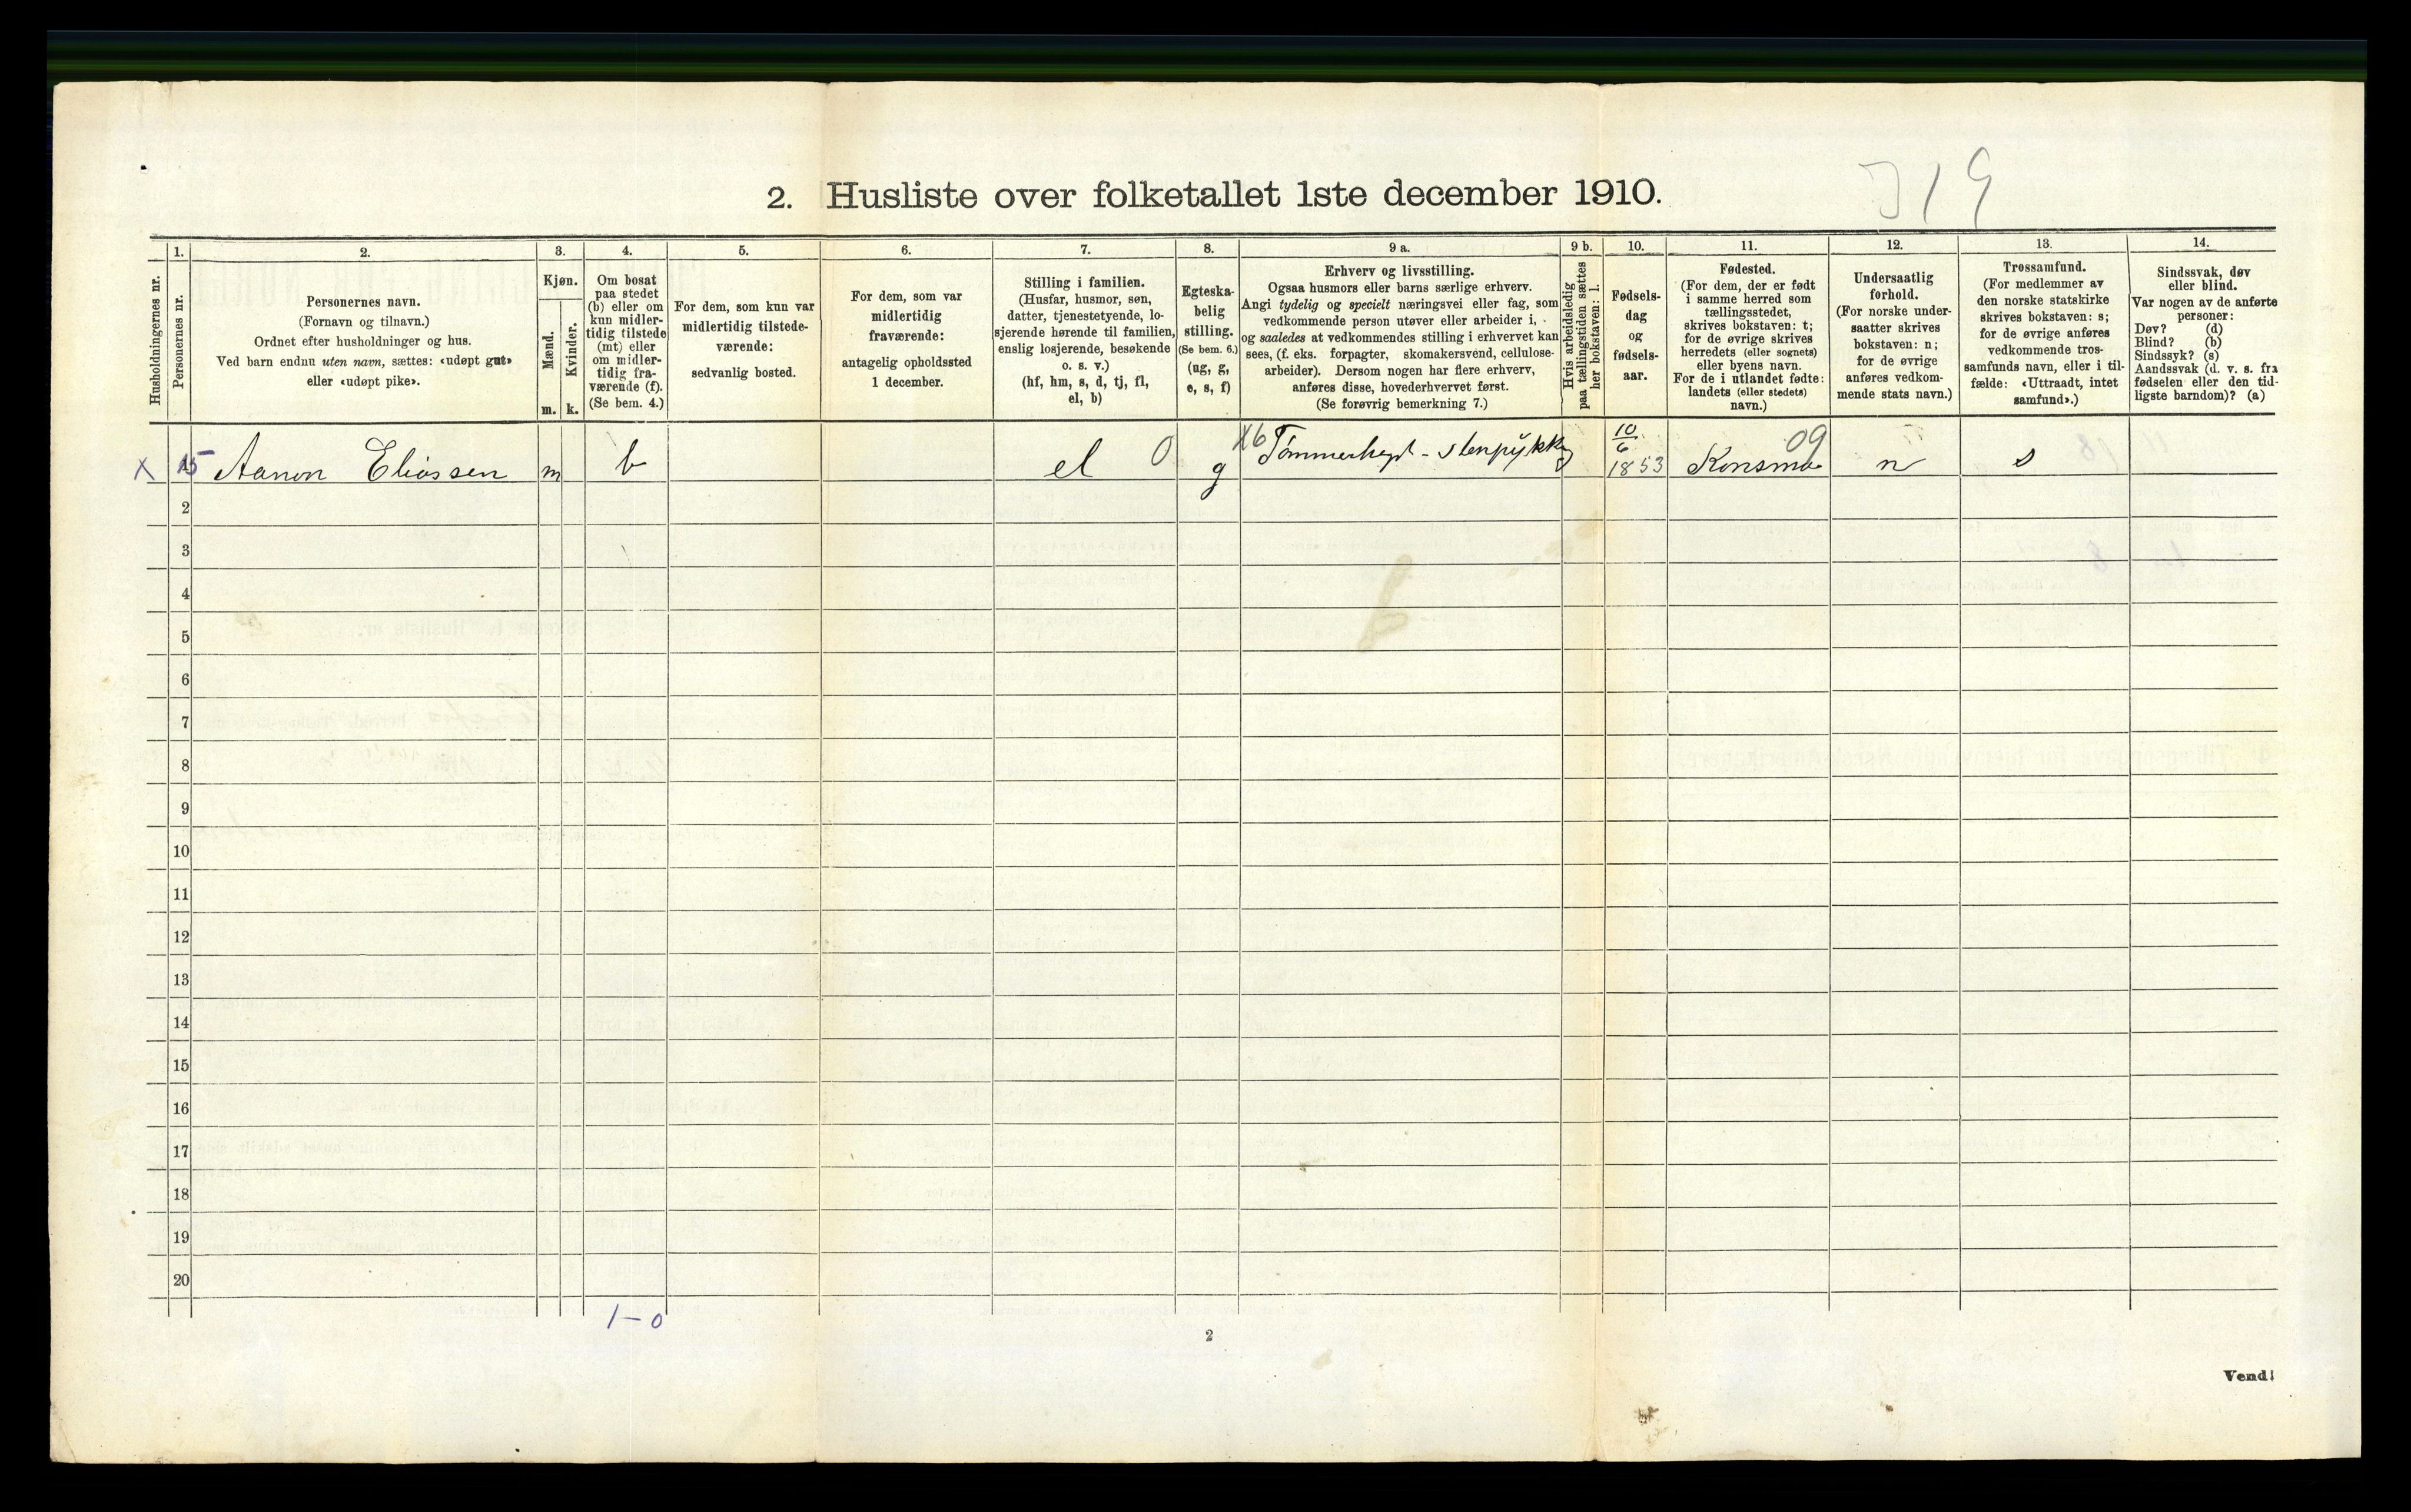 2. Husliste over folketallet 1ste december 1910.
319
Husholdningernes nr.
1.
Personernes nr.
2.
Personernes navn.
(Fornavn og tilnavn.)
Ordnet efter husholdninger og hus.
Ved barn endnu uten navn, sættes: «udøpt gut»
eller «udøpt pike».
3.
Kjøn.
Mænd.
Kvinder.
m. k.
4.
Om bosat
paa stedet
(b) eller om
kun midler-
tidig tilstede
(mt) eller
om midler-
tidig fra-
værende (f).
(Se bem. 4.)
5.
For dem, som kun var
midlertidig tilstede-
værende:
sedvanlig bosted.
6.
For dem, som var
midlertidig
fraværende:
antagelig opholdssted
1 december.
7.
Stilling i familien.
(Husfar, husmor, søn,
datter, tjenestetyende, lo-
sjerende hørende til familien,
enslig losjerende, besøkende
o. s. v.)
(hf, hm, s, d, tj, fl,
el, b)
8.
Egteska-
belig
stilling.
(Se bem. 6.)
(ug, g,
e, s, f)
9 a.
Erhverv og livsstilling.
Ogsaa husmors eller barns særlige erhverv.
Angi tydelig og specielt næringsvei eller fag, som
vedkommende person utøver eller arbeider i,
og saaledes at vedkommendes stilling i erhvervet kan
sees, (f. eks. forpagter, skomakersvend, cellulose-
arbeider). Dersom nogen har flere erhverv,
anføres disse, hovederhvervet først.
(Se forøvrig bemerkning 7.)
9 b.
Hvis arbeidsledig
paa tællingstiden sættes
her bokstaven: l.
10.
Fødsels-
dag
og
fødsels-
aar.
11.
Fødested.
(For dem, der er født
i samme herred som
tællingsstedet,
skrives bokstaven: t;
for de øvrige skrives
herredets (eller sognets)
eller byens navn.
For de i utlandet fødte:
landets (eller stedets)
navn.)
12.
Undersaatlig
forhold.
(For norske under-
saatter skrives
bokstaven: n;
for de øvrige
anføres vedkom-
mende stats navn.)
13.
Trossamfund.
(For medlemmer av
den norske statskirke
skrives bokstaven: s;
for de øvrige anføres
vedkommende tros-
samfunds navn, eller i til-
fælde: «Uttraadt, intet
samfund».)
14.
Sindssvak, døv
eller blind.
Var nogen av de anførte
personer:
Døv? (d)
Blind? (b)
Sindssyk? (s)
Aandssvak (d. v. s. fra
fødselen eller den tid-
ligste barndom)? (a)
x 15 Aanon Eliassen m b el 0 g x6 10/6 1853 Konsmo 09 n s
2
3
4
5
6
7
8
9
10
11
12
13
14
15
16
17
18
19
20
1-0
2
Vend!